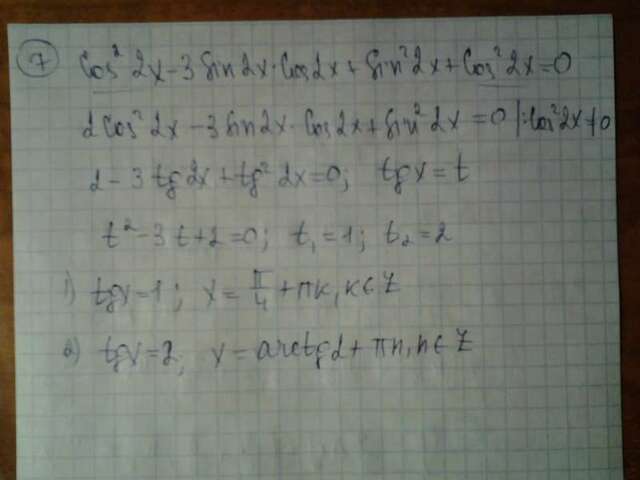 7 cos² 2x - 3 sin2x·cos2x + sin² 2x + cos² 2x = 0
2cos² 2x - 3 sin2x·cos2x + sin² 2x = 0 |: cos² 2x ≠ 0
2 - 3 tg 2x + tg² 2x = 0; tg x = t
t² - 3t + 2 = 0; t₁ = 1; t₂ = 2
1) tgx = 1; x = π/4 + πk, k ∈ Z
2) tgx = 2; x = arctg2 + πn, n ∈ Z